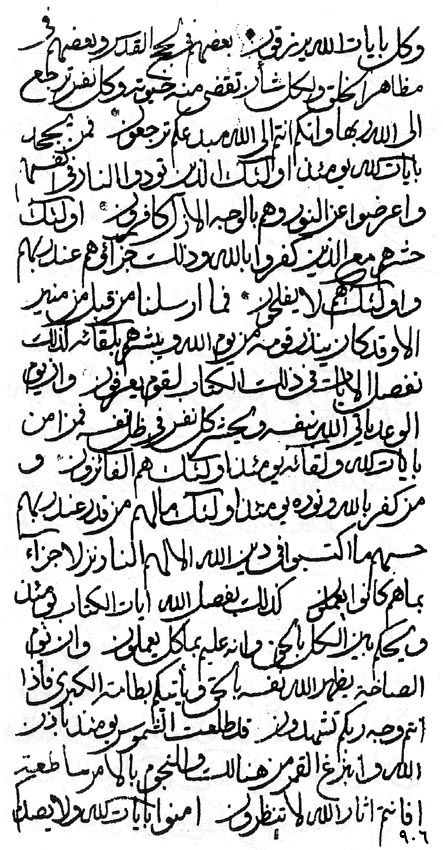 وكل بايات الله يرزقون بعضهم في لجج القدس وبعضهم في
مظاهر الخلق ولكل شأن تقضى منه حيوته وكل نفس ترجع
الى الله ربها وانكم انتم الى الله مبدعكم ترجعون فمن يجحد
بايات الله يومئذ اولئك الذين توقدوا النار في انفسهم
واعرضوا عن النور وهم بالوجه الازل كافرون اولئك
حشرهم مع الذين كفروا بالله وذلك جزائهم عند ربهم
واولئك هم لا يفلحون فما ارسلنا من قبل من منير
الا وقد كان ينذر قومه من يوم الله ويبشرهم بلقائه كذلك
نفصل الايات في ذلك الكتاب لقوم يعرفون وان يوم
الوعد ياتي الله بنفسه ويحشر كل نفس في ظل نفسه فمن امن
بايات الله ولقائه يومئذ اولئك هم الفائزون و
من كفر بالله ونوره يومئذ اولئك مالهم من قدر عند ربهم
حسبهم ما اكتسبوا في دين الله الا لهم النار نزلا جزاء
بما هم كانوا يعملون كذلك يفصل الله ايات الكتاب يومئذ
ويحكم بين الكل بالحق وانه عليم بما كل يعملون وان يوم
الصاخة يظهر الله نفسه بالحق وياتيكم بطامته الكبرى فاذا
انتم وجه ربكم تشهدون قد طلعت الشموس يومئذ باذن
الله وابزغ القمر من هنالك والنجوم بالامر ساطعية
افانتم اثار الله لا تنظرون امنوا بايات الله ولا يصدكم
٩٠٦